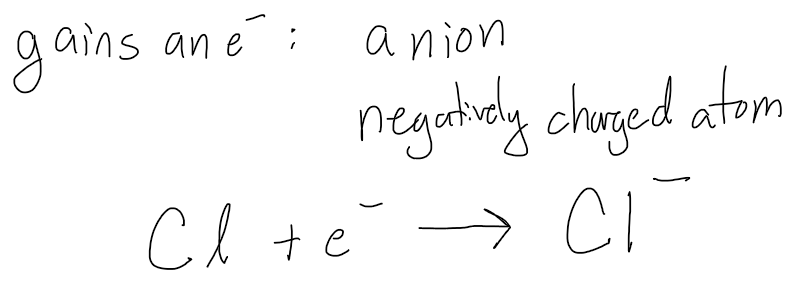 gains an e⁻ : anion
negatively charged atom
Cl + e⁻ → Cl⁻